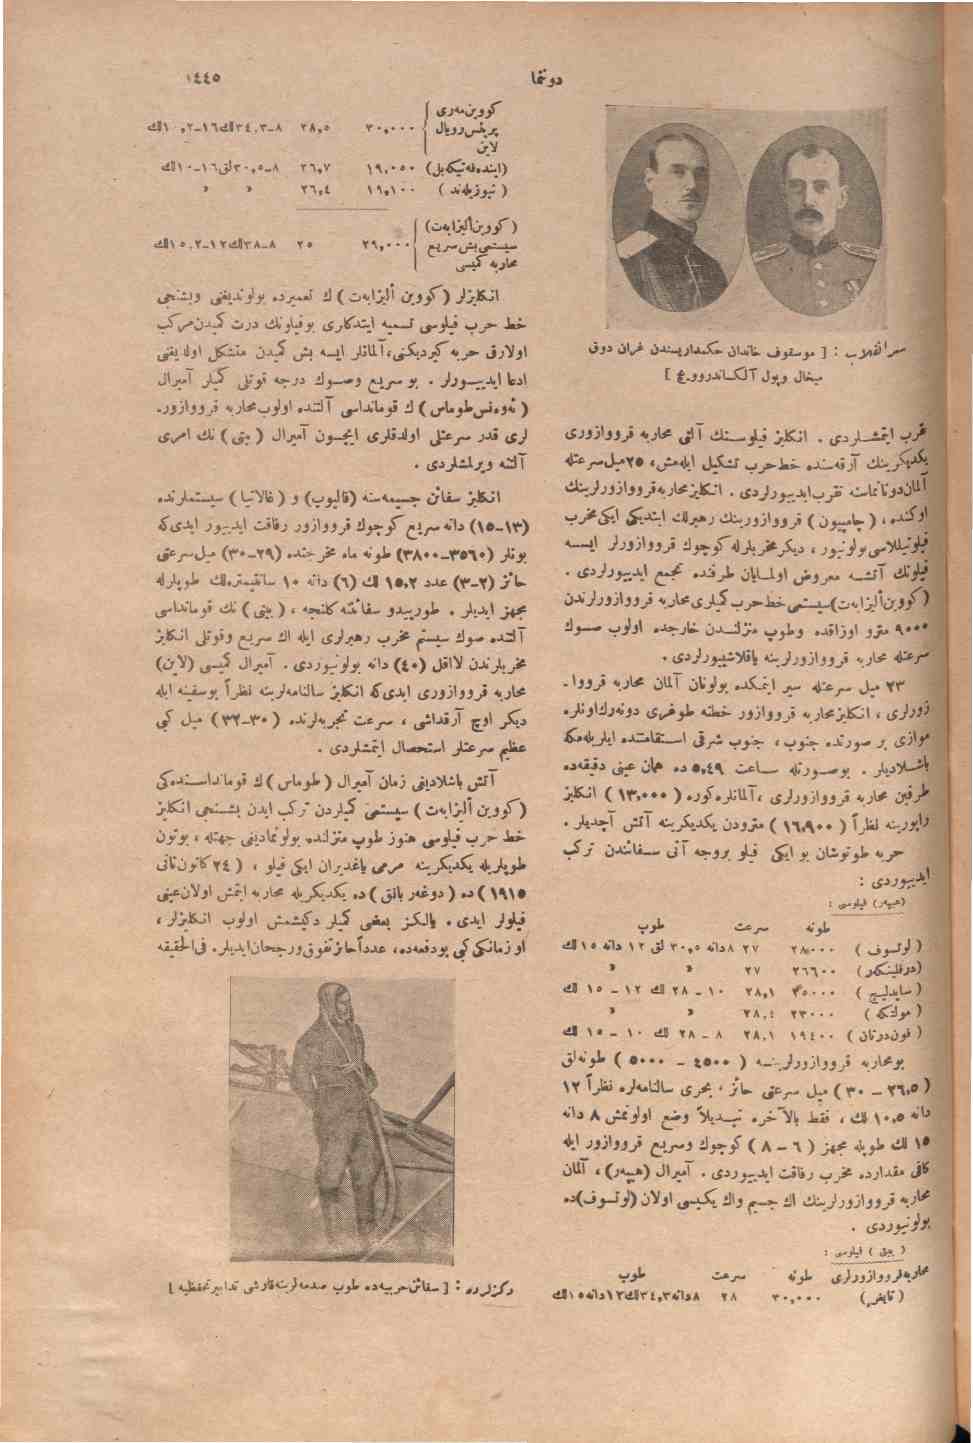 دونما
١٤٤٥
سر انقلاب : [ موسقوف خاندان حکمداریسندن غران دوق
میخال وپول آلکساندروویچ ]
تقرب ایتمشلردی . انکلیز فیلوسنك آلتی محاربه قرووازوری
یکدیکرینك آرقه‌سنده خط حرب تشکیل ایله‌مش، ٢٥ میل سرعتله
آلمان دونانماسنه تقرب ایدییورلردی . انکلیز محاربه قرووازورلرینك
اوکنده ، ( چامپیون ) قرووازورینك رهبرلك ایتدیکی ایکی مخرب
فیلوتیللاسی بولونیور ، دیکر مخربلرله کوچوك قرووازورلر ایسه
فیلونك آتشه معروض اولمایان طرفنده تجمع ایدییورلردی .
( کووین ألیزابه‌ت ) سیستمی خط حرب کمیلری محاربه قرووازورلرندن
٩٠٠٠ مترو اوزاقده وطوپ منزلندن خارجده اولوب صوك
سرعتله محاربه قرووازورلرینه یاقلاشییورلردی .
٢٣ میل سرعتله سیر ایتمکده بولونان آلمان محاربه قرووا-
زورلری ، انکلیز محاربه قرووازور خطنه طوغری دونه‌رك اونلره
موازی بر صورتده جنوب ، جنوب شرقی استقامتنده ایلریله‌مکه
باشلادیلر . بوصورتله ساعت ٥,٤٩ ده همان عینی دقیقه‌ده
طرفین محاربه قرووازورلری ، آلمانلره کوره ( ١٣,٠٠٠ ) انکلیز
راپورینه نظراً ( ١٦,٩٠٠ ) مترودن یکدیکرینه آتش آچدیلر .
حربه طوتوشان بو ایکی فیلو بروجه آتی سفائندن ترکب
ایدییوردی :
(هیپه‌ر) فیلوسی :
طونه سرعت طوپ
( لوتسوف ) ٢٨٠٠٠ ٢٧ ٨ دانه ٣٠,٥ لق ١٢ دانه ١٥ لك
(درفلینکه‌ر) ٢٦٦٠٠ ٢٧ » »
( سایدلیچ ) ٢٥٠٠٠ ٢٨,١ ١٠ - ٢٨ لك ١٢ - ١٥ لك
( مولتکه ) ٢٣٠٠٠ ٢٨,٤ » »
( فون درتان ) ١٩٤٠٠ ٢٨,١ ٨ - ٢٨ لك ١٠ - ١٥ لك
بو محاربه قرووازورلرینه ( ٤٥٠٠ - ٥٠٠٠ ) طونه‌لق
( ٢٦,٥ - ٣٠ ) میل سرعتی حائز ، بحری سالنامه‌لره نظراً ١٢
دانه ١٠,٥ لك ، فقط بالآخره تبدیلاً وضع اولونمش ٨ دانه
١٥ لك طوپله مجهز ( ٦ - ٨ ) کوچوك وسریع قرووازور ایله
کافی مقدارده مخرب رفاقت ایدییوردی . آمیرال (هیپه‌ر) ، آلمان
محاربه قرووازورلرینك اك جسیم واك یکیسی اولان (لوتسوف) ده
بولونیوردی .
( بیتی ) فیلوسی :
محاربه قرووازورلری طونه سرعت طوپ
( تایغر ) ٣٠,٠٠٠ ٢٨ ٨ دانه ٣٤,٣ لك ١٢ دانه ١٥ لك
کووین مه‌ری
پرینس رویال ٣٠,٠٠٠ ٢٨,٥ ٨-٣٤,٣ لك ١٦-١٠,٢ لك
لاین
(ایندەفه‌تیکه‌بل) ١٩,٠٥٠ ٢٦,٧ ٨-٣٠,٥ لق ١٦-١٠ لك
( نیوزیله‌ند ) ١٩,١٠٠ ٢٦,٤ » »
( کووین ألیزابه‌ت )
سیستمی بش سریع ٢٩,٠٠٠ ٢٥ ٨-٣٨ لك ١٢-١٥,٢ لك
محاربه کمیسی
انکلیزلر ( کووین ألیزابه‌ت ) ك تعمیرده بولوندیغنی وبشنجی
خط حرب فیلوسی تسمیه ایتدکلری بو فیلونك درت کمیدن مرکب
اولارق حربه کیردیکنی، آلمانلر ایسه بش کمیدن متشکل اولدیغنی
ادعا ایدییورلر . بو سریع وصوك درجه قوتلی کمیلر آمیرال
( ئه‌وه‌نس طوماس ) ك قومانداسی آلتنده اولوب محاربه قرووازور-
لری قدر سرعتلی اولدقلری ایچون آمیرال ( بیتی ) نك امری
آلتنه ویرلمشلردی .
انکلیز سفائن جسیمه‌سنه (قالیوپ) و ( غالاتیا ) سیستملرنده
(١٣-١٥) دانه سریع کوچوك قرووازور رفاقت ایدییور ایدی که
بونلر (٣٥٦٠-٣٨٠٠) طونه ماه مخرجنده (٢٩-٣٠) میل سرعتی
حائز (٢-٣) عدد ١٥,٢ لك (٦) دانه ١٠ سانتیمتره‌لك طوپلرله
مجهز ایدیلر . طورپیدو سفائننه کلنجه ، ( بیتی ) نك قومانداسی
آلتنده صوك سیستم مخرب رهبرلری ایله اك سریع وقوتلی انکلیز
مخربلرندن لااقل (٤٠) دانه بولونیوردی . آمیرال کمیسی (لاین)
محاربه قرووازوری ایدی که انکلیز سالنامه‌لرینه نظراً بو سفینه ایله
دیکر اوچ آرقداشی ، سرعت تجربه‌لرنده ( ٣٠-٣٢ ) میل کبی
عظیم سرعتلر استحصال ایتمشلردی .
آتش باشلادیغی زمان آمیرال ( طوماس ) ك قومانداسنده‌کی
( کووین ألیزابه‌ت ) سیستمی کمیلردن ترکب ایدن بشنجی انکلیز
خط حرب فیلوسی هنوز طوپ منزلنده بولونمادیغی جهتله ، بوتون
طوپلریله یکدیکرینه مرمی یاغدیران ایکی فیلو ، ( ٢٤ کانون ثانی
١٩١٥ ) ده ( دوغه‌ر بانق ) ده یکدیکریله محاربه ایتمش اولان عینی
فیلولر ایدی . یالکز بعضی کمیلر دکیشمش اولوب انکلیزلر ،
او زمانکی کبی بو دفعه‌ده ، عدداً حائز تفوق ورجحان ایدیلر . فی الحقیقه
: [ سفائن حربیه‌ده طوپ صدمه‌لرینه قارشی تدابیر تحفظیه ]